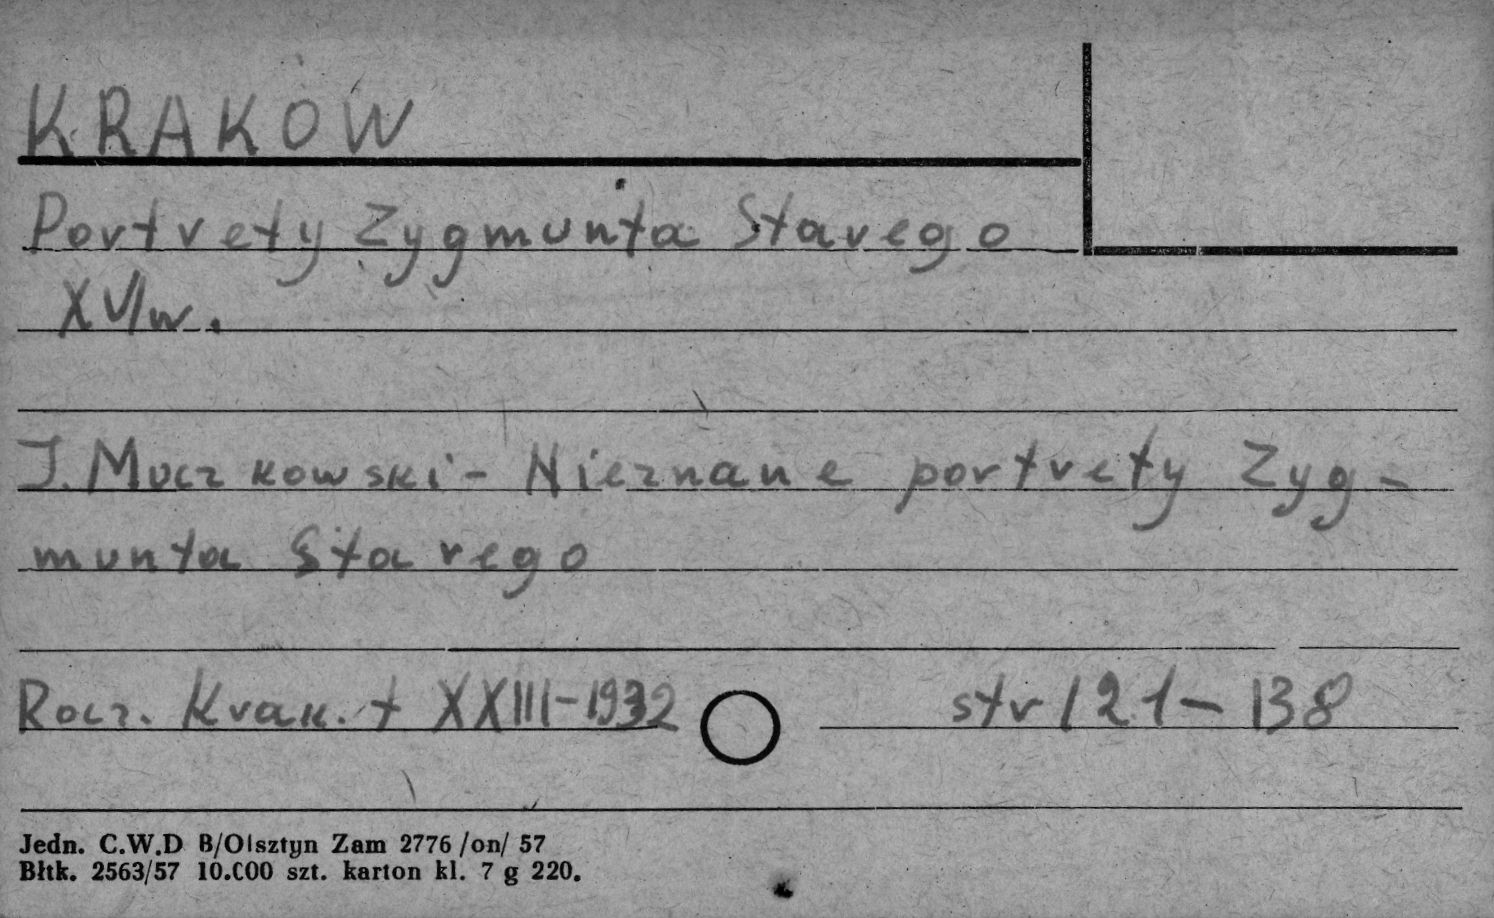 KRAKÓW
Portrety Zygmunta Starego
XVIw.
J. Muczkowski - Nieznane portrety Zyg-
munta Starego
Rocz. Krak. t XXIII-1932 str 121-138
Jedn. C.W.D B/Olsztyn Zam 2776 /on/ 57
Błtk. 2563/57 10.000 szt. karton kl. 7 g 220.